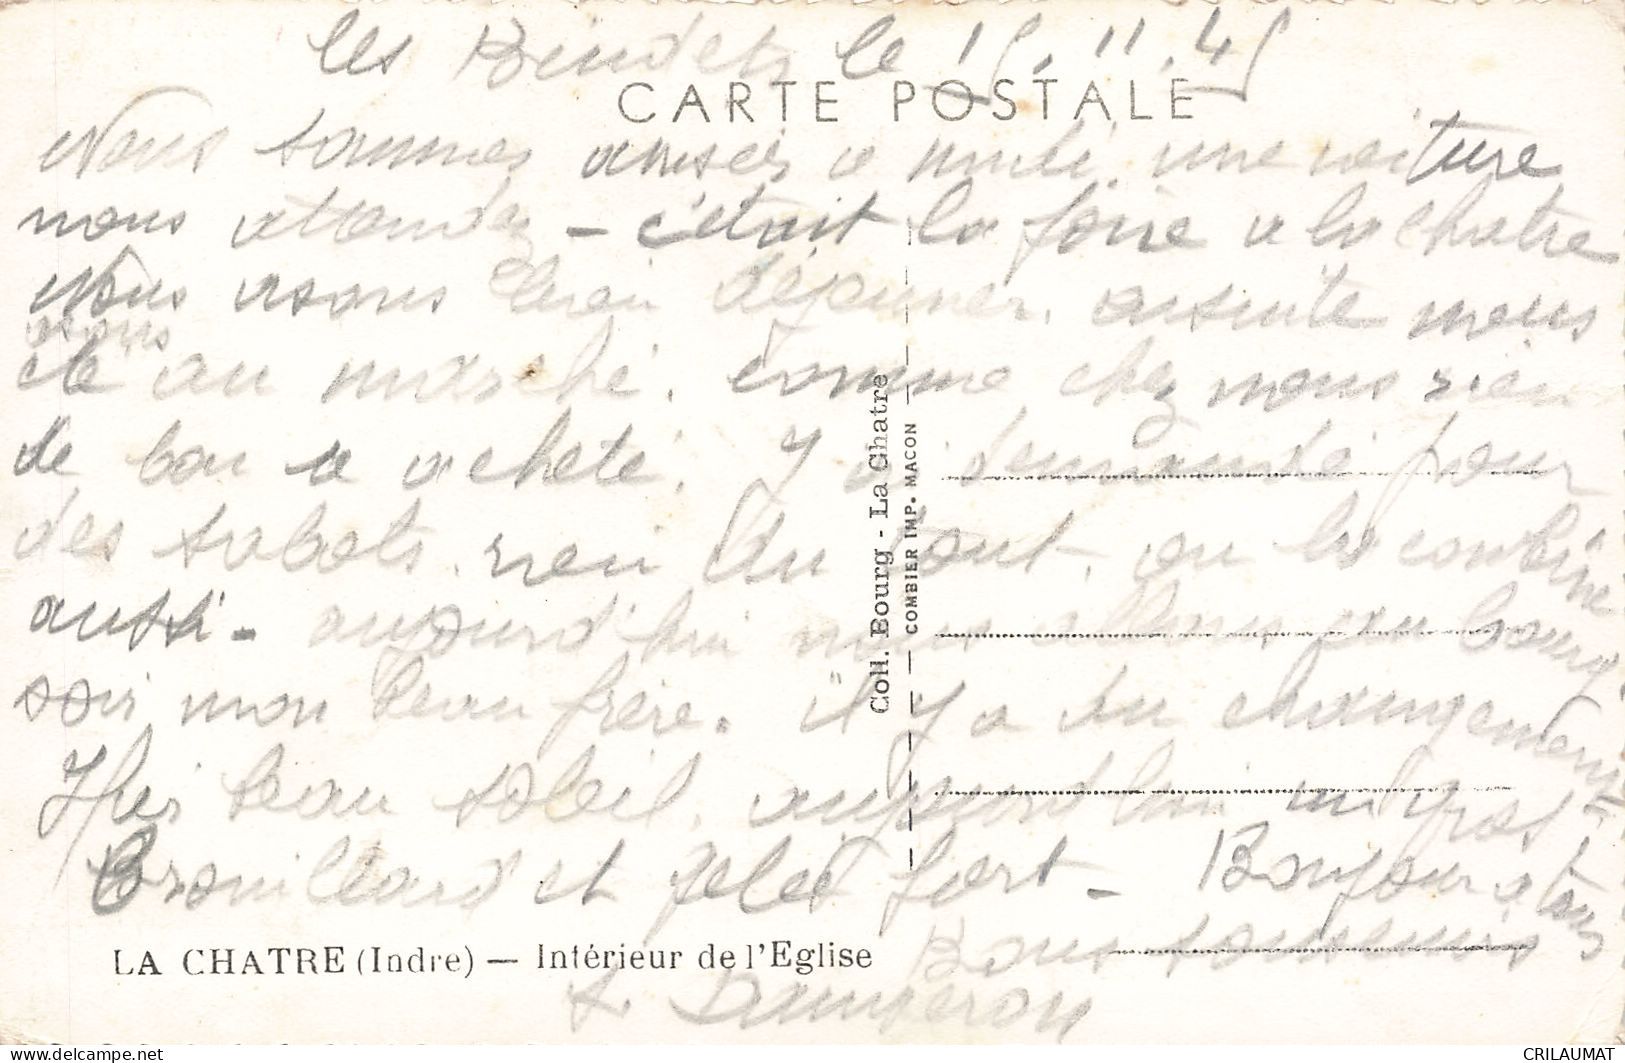 les Bendets le 15.11.45
CARTE POSTALE
Nous sommes arrisés a midi. une voiture
nous attendez - c'était la foire a la chatre
Nous asons bien déjeuner. ensuite nous
asons
été au marché. comme chez nous rien
de bon a acheté. J'ai demandé pour
des sabots. rien du tout. on les combine
aussi - aujourd'hui nous allons au bourg
soir mon beau frère. il y a du changement
Hier beau soleil. aujourd'hui un gros
Brouillard et gelée fort - Bonjour a tous
Bons souvenirs
Coll. Bourg - La Chatre
COMBIER IMP. MACON
LA CHATRE (Indre) — Intérieur de l'Eglise
CRILAUMAT